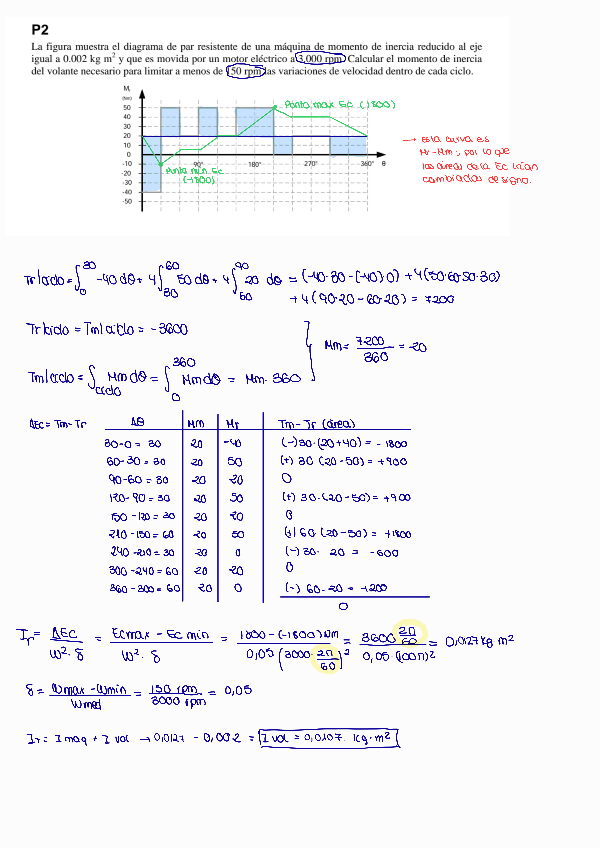 P2
La figura muestra el diagrama de par resistente de una máquina de momento de inercia reducido al eje
igual a 0.002 kg m² y que es movida por un motor eléctrico a 3.000 rpm. Calcular el momento de inercia
del volante necesario para limitar a menos de 150 rpm las variaciones de velocidad dentro de cada ciclo.
Mᵣ
(Nm)
50
40
30
20
10
0
-10
-20
-30
-40
-50
90° 180° 270° 360° θ
Punto max Ec (1800)
Punto min Ec
(-1800)
→ esta curva es
Mr-Mm, por lo que
las áreas de la Ec están
cambiadas de signo.
Tr|ciclo = ∫₀³⁰ -40 dθ + 4∫₃₀⁶⁰ 50 dθ + 4∫₆₀⁹⁰ 20 dθ = (-40·30-(-40)·0) + 4(50·60-50·30)
+ 4(90·20-60·20) = 7200
Tr|ciclo = Tm|ciclo = -3600
Mm = 7200/360 = 20
Tm|ciclo = ∫ciclo Mm dθ = ∫₀³⁶⁰ Mm dθ = Mm·360
ΔEc = Tm-Tr Δθ Mm Mr Tm-Tr (área)
30-0 = 30 20 -40 (-)30·(20+40) = -1800
60-30 = 30 20 50 (+) 30·(20-50) = +900
90-60 = 30 20 20 0
120-90 = 30 20 50 (+) 30·(20-50) = +900
150-120 = 30 20 20 0
210-150 = 60 20 50 (+) 60·(20-50) = +1800
240-210 = 30 20 0 (-) 30· 20 = -600
300-240 = 60 20 20 0
360-300 = 60 20 0 (-) 60·20 = -1200
0
Ir = ΔEc/(ω²·δ) = (Ecmax - Ecmin)/(ω²·δ) = (1800-(-1800) Nm)/(0,05(3000·2π/60)²) = (3600·2π/60)/(0,05·(100π)²) = 0,0127 kg m²
δ = (ωmax - ωmin)/ωmed = 150 rpm/3000 rpm = 0,05
Ir = I maq + I vol → 0,0127 - 0,002 = I vol = 0,0107 kg·m²